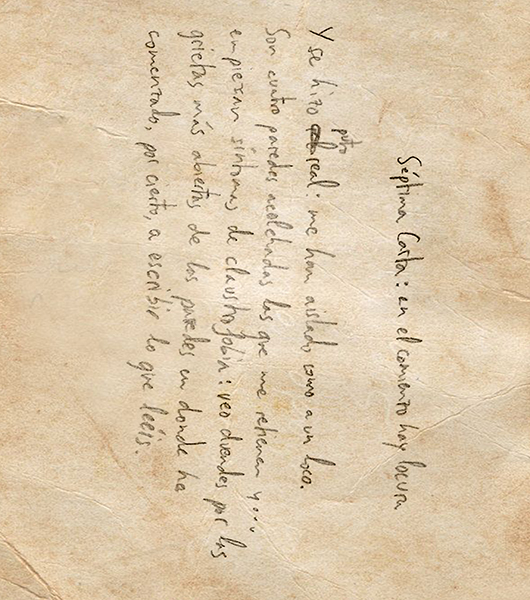 Séptima Carta: en el comienzo hay locura
Y se hizo puto real: me han aislado como a un loco.
Son cuatro paredes acolchadas las que me retienen y...
empiezan síntomas de claustrofobia: veo duendes por las
grietas más abiertas de las paredes en donde he
comenzado, por cierto, a escribir lo que leéis.